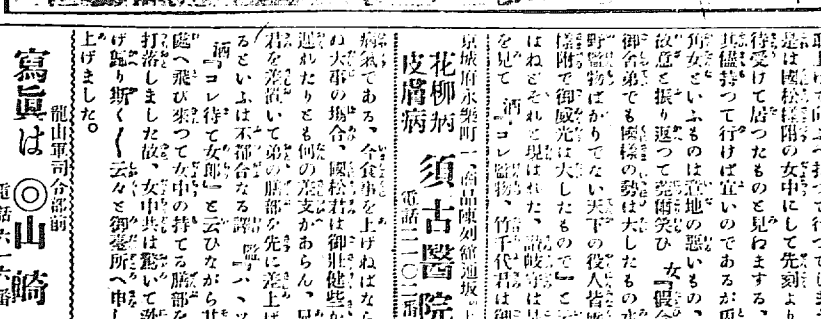 是は國松樣附の女中にして先刻より
待受けて居つたものと見わまする、
其儘持つて行けば宜いのであるが
角女といふものは意地の惡いもの、
故意と振り返つて
御令弟でも國樣の勢は大したもの
野監物ばかりでない天下の役人皆
樣附で御威光は大したもので』と
はねどそれと現はれた、讃岐守は
を見て 酒『コレ監物、竹千代君は御
京城府永樂町一、商品陳列舘通坂の上
花柳病
皮膚病
須古醫院
電話二一〇二番
病氣である、今食事を上げねばなら
ぬ大事の場合、國松君は御壯健些か
遲れたりとも何の差支かあらん、兄
君を差置いて弟の膳部を先に差上げ
るといふは不都合なる譯
酒『コレ待て女郎』と云ひながら其
處へ飛び來つて女中の持てる膳部を
打落しました故、女中共は驚いて逃
げ歸り斯く〱云々と御臺所へ申し
上げました。
龍山軍司令部前
寫眞は◎山崎
電話六一六番